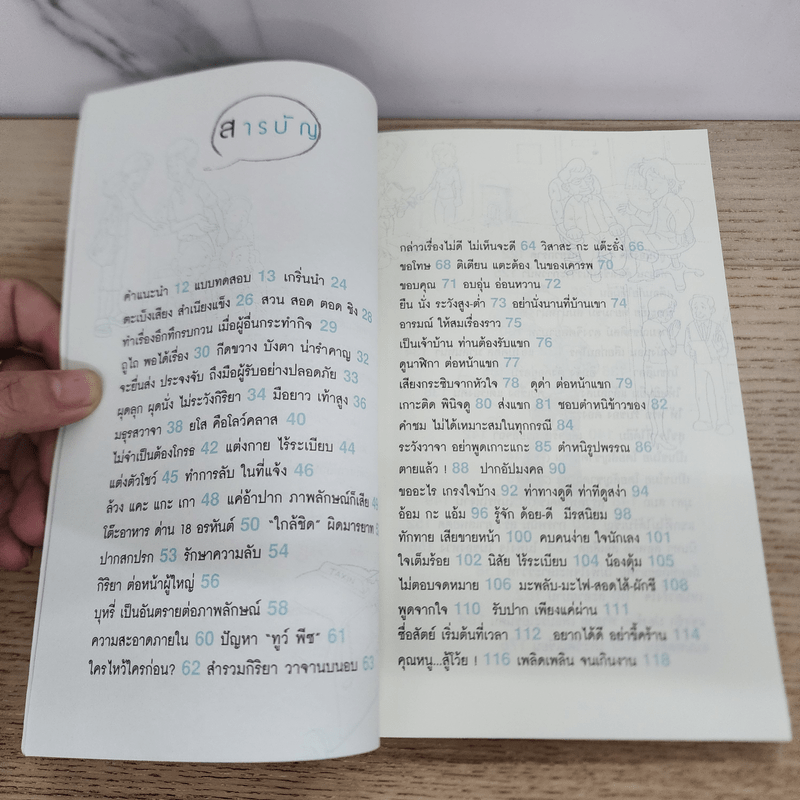 สารบัญ
คำแนะนำ 12 แบบทดสอบ 13 เกริ่นนำ 24
ตะเบ็งเสียง สำเนียงแข็ง 26 สวน สอด ตอด ชิง 28
ทำเรื่องอึกทึกรบกวน เมื่อผู้อื่นกระทำกิจ 29
ถูไถ พอได้เรื่อง 30 กีดขวาง บังตา น่ารำคาญ 32
จะยื่นส่ง ประจงจับ ถึงมือผู้รับอย่างปลอดภัย 33
ผุดลุก ผุดนั่ง ไม่ระวังกิริยา 34 มือยาว เท้าสูง 36
มธุรสวาจา 38 ยโส คือโลว์คลาส 40
ไม่จำเป็นต้องโกรธ 42 แต่งกาย ไร้ระเบียบ 44
แต่งตัวโชว์ 45 ทำการลับ ในที่แจ้ง 46
ล้วง แคะ แกะ เกา 48 แค่อ้าปาก ภาพลักษณ์ก็เสีย
โต๊ะอาหาร ด่าน 18 อรหันต์ 50 "ใกล้ชิด" ผิดมารยาท
ปากสกปรก 53 รักษาความลับ 54
กิริยา ต่อหน้าผู้ใหญ่ 56
บุหรี่ เป็นอันตรายต่อภาพลักษณ์ 58
ความสะอาดภายใน 60 ปัญหา "ทูว์ พีซ" 61
ใครไหว้ใครก่อน? 62 สำรวมกิริยา วาจานบนอบ 63
กล่าวเรื่องไม่ดี ไม่เห็นจะดี 64 วิสาสะ กะ แต๊ะอั๋ง 66
ขอโทษ 68 ติเตียน แตะต้อง ในของเคารพ 70
ขอบคุณ 71 อบอุ่น อ่อนหวาน 72
ยืน นั่ง ระวังสูง-ต่ำ 73 อย่านั่งนานที่บ้านเขา 74
อารมณ์ ให้สมเรื่องราว 75
เป็นเจ้าบ้าน ท่านต้องรับแขก 76
ดูนาฬิกา ต่อหน้าแขก 77
เสียงกระซิบจากหัวใจ 78 ดุด่า ต่อหน้าแขก 79
เกาะติด พินิจดู 80 ส่งแขก 81 ชอบตำหนิข้าวของ 82
คำชม ไม่ได้เหมาะสมในทุกกรณี 84
ระวังวาจา อย่าพูดเกาะแกะ 85 ตำหนิรูปพรรณ 86
ตายแล้ว ! 88 ปากอัปมงคล 90
ขออะไร เกรงใจบ้าง 92 ท่าทางดูดี ท่าทีดูสง่า 94
อ้อม กะ แอ้ม 96 รู้จัก ด้อย-ดี มีรสนิยม 98
ทักทาย เสียขายหน้า 100 คบคนง่าย ใจนักเลง 101
ใจเต็มร้อย 102 นิสัย ไร้ระเบียบ 104 น้องตุ้ม 105
ไม่ตอบจดหมาย 106 มะพลับ-มะไฟ-สอดไส้-ผักชี 108
พูดจากใจ 110 รับปาก เพียงแค่ผ่าน 111
ชื่อสัตย์ เริ่มต้นที่เวลา 112 อยากได้ดี อย่าขี้คร้าน 114
คุณหนู...สู้โว้ย ! 116 เพลิดเพลิน จนเกินงาน 118